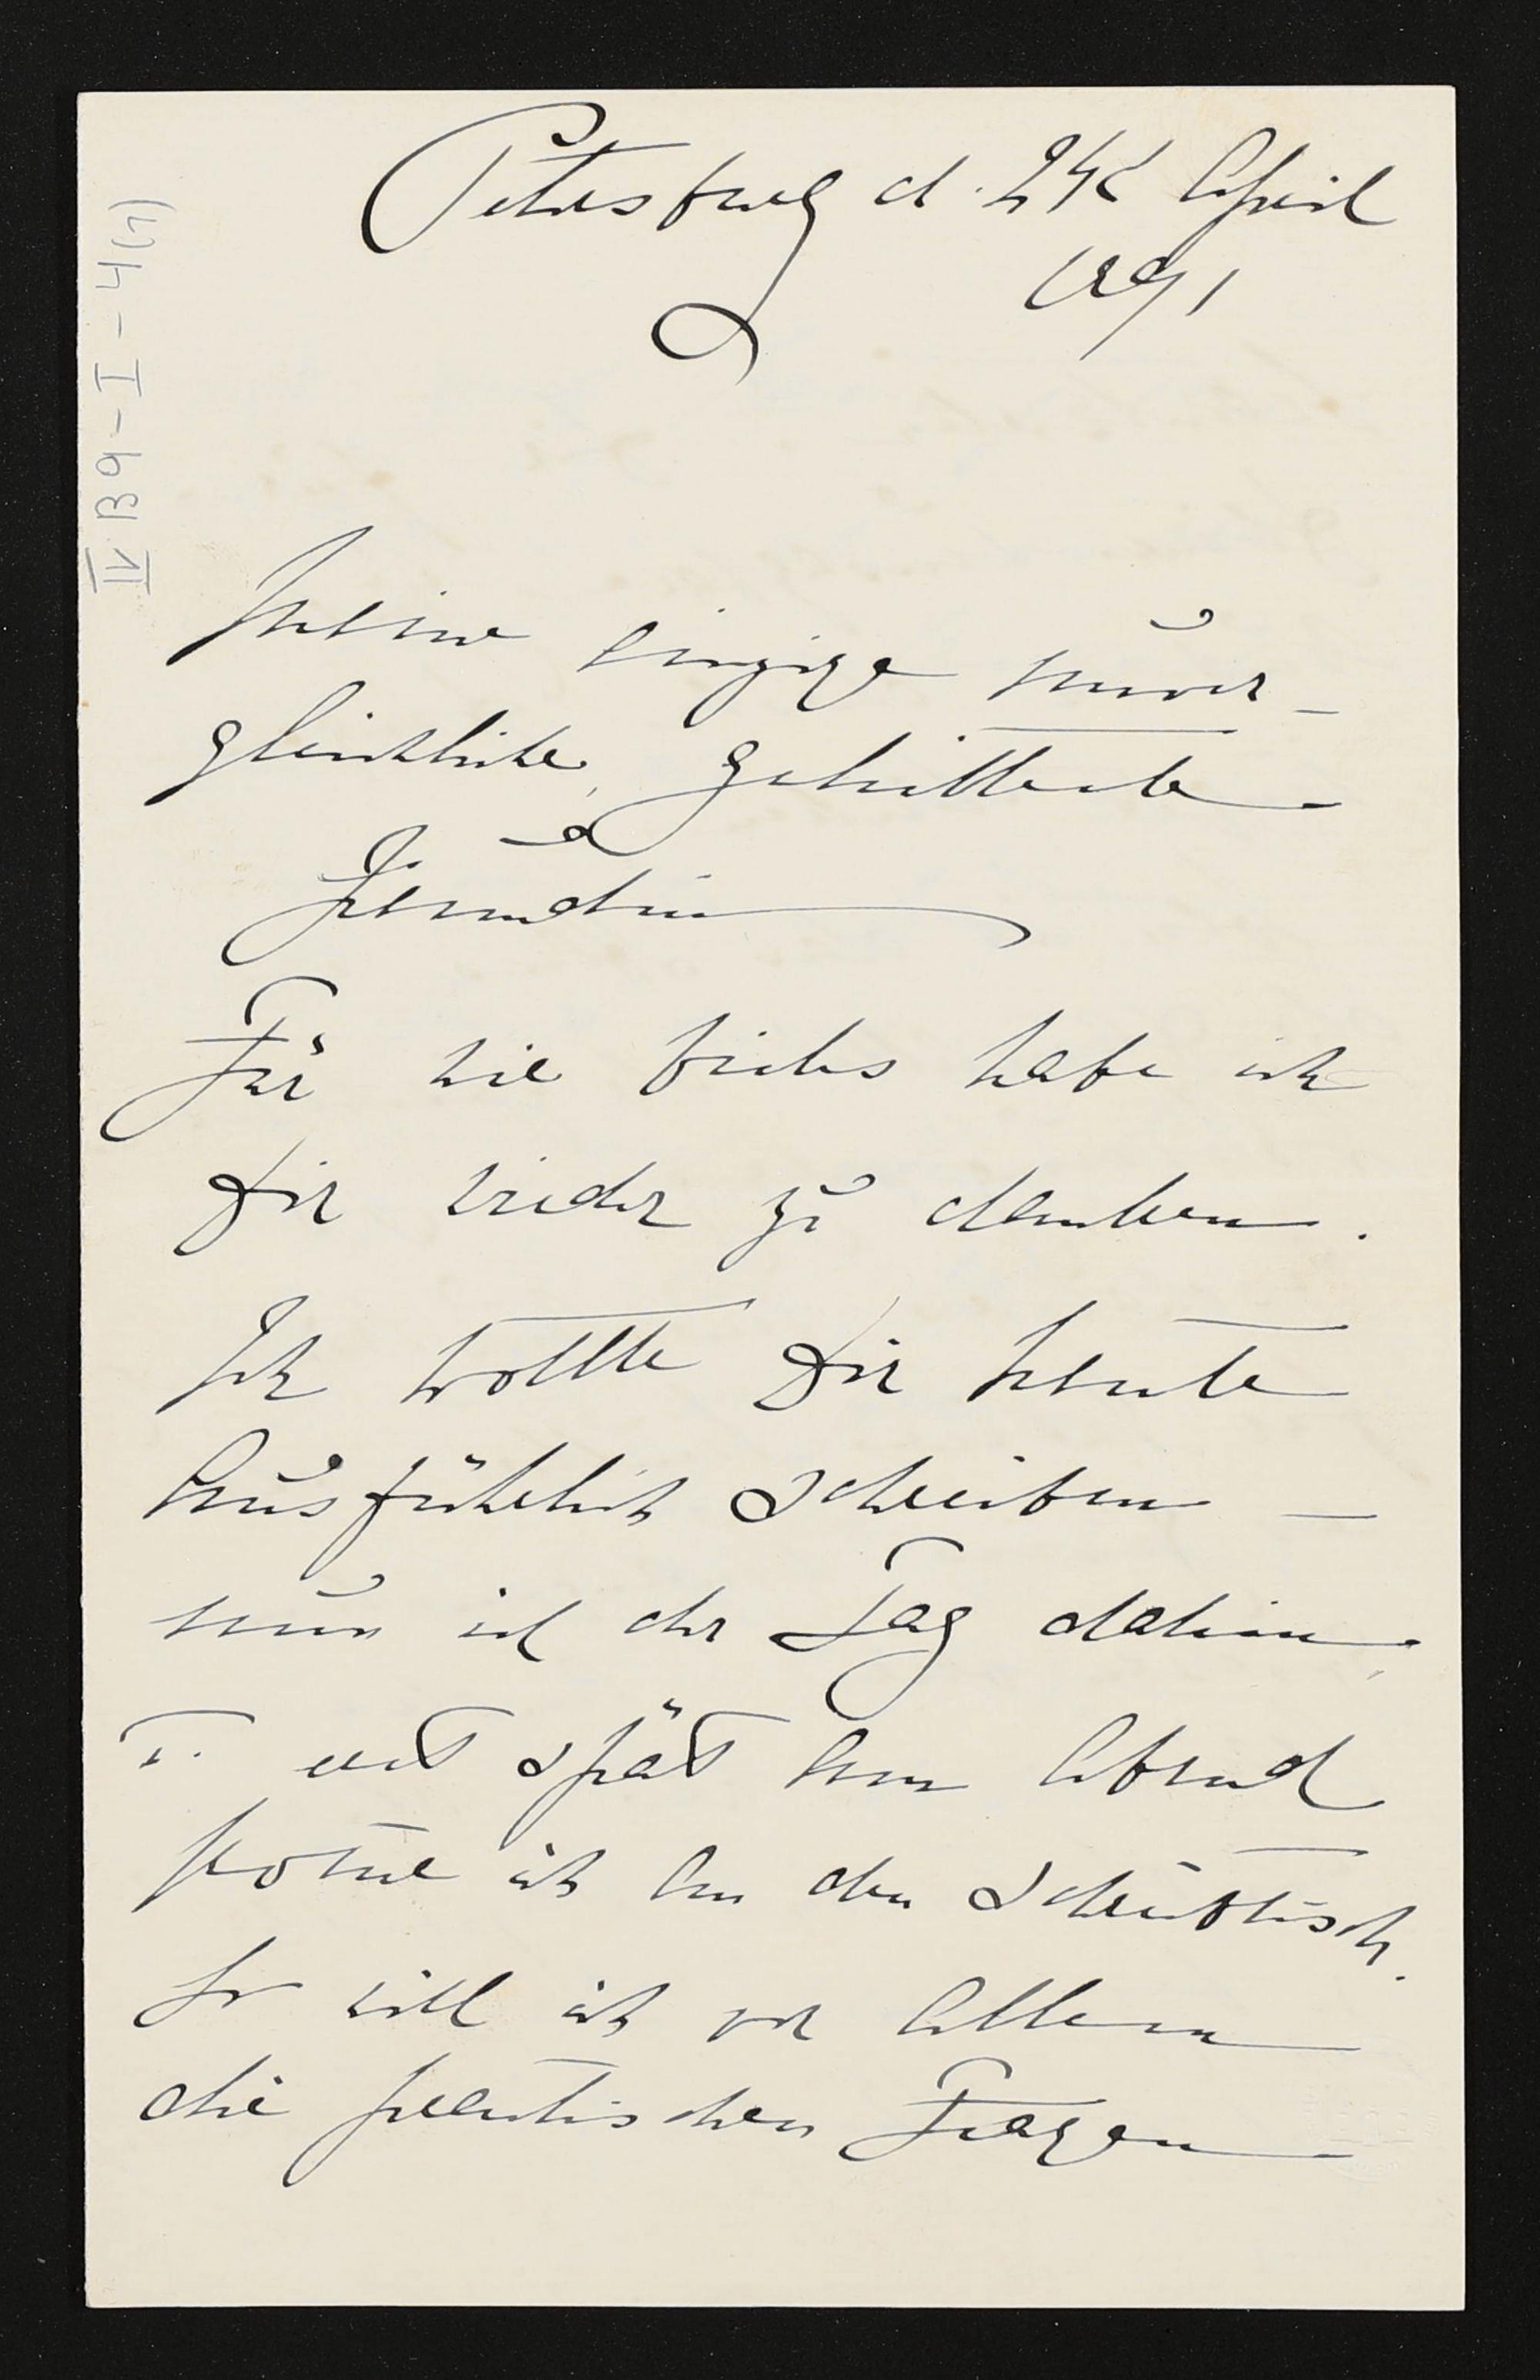 Petersburg d. 24t April
1891
IV B9-I-4(1)
Meine einzige unver-
gleichliche, geliebteste
Freundin
Für wie vieles habe ich
Dir wieder zu danken.
Ich wollte Dir heute
Ausführlich schreiben —
nun ist der Tag dahin,
u. erst spät am Abend
kom̅e ich an den Schreibtisch.
So will ich vor Allem
die practischen Fragen